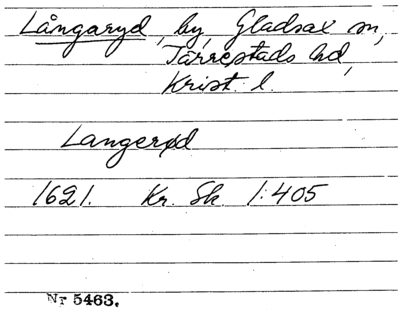 Långaryd, by, Gladsax sn,
Järrestads hd,
Krist. l.
Langerød
1621. Kr. Sk. 1:405
Nr 5463.